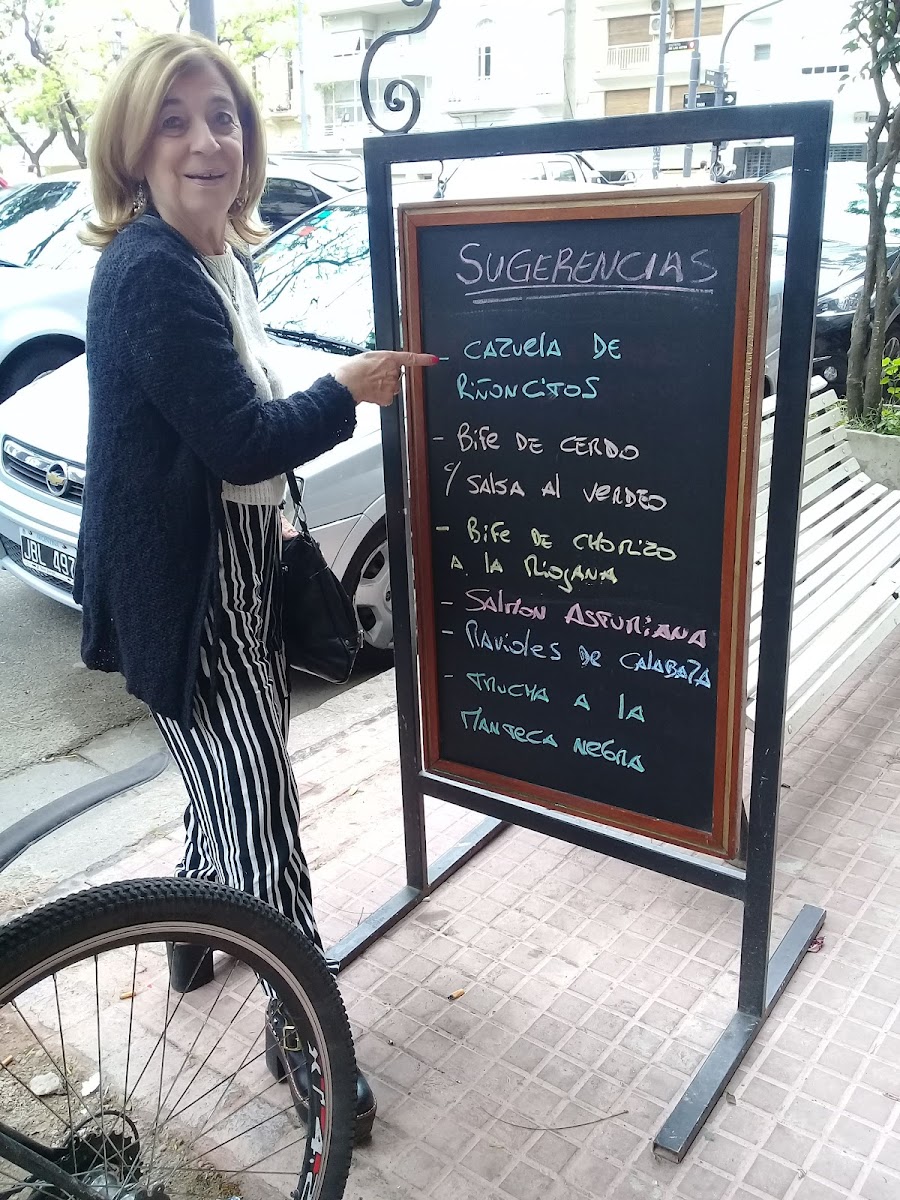 SUGERENCIAS
- CAZUELA DE
RIÑONCITOS
- BIFE DE CERDO
C/ SALSA AL VERDEO
- BIFE DE CHORIZO
A LA RIOJANA
- SALMON ASTURIANA
- RAVIOLES DE CALABAZA
- TRUCHA A LA
MANTECA NEGRA
JBL 497